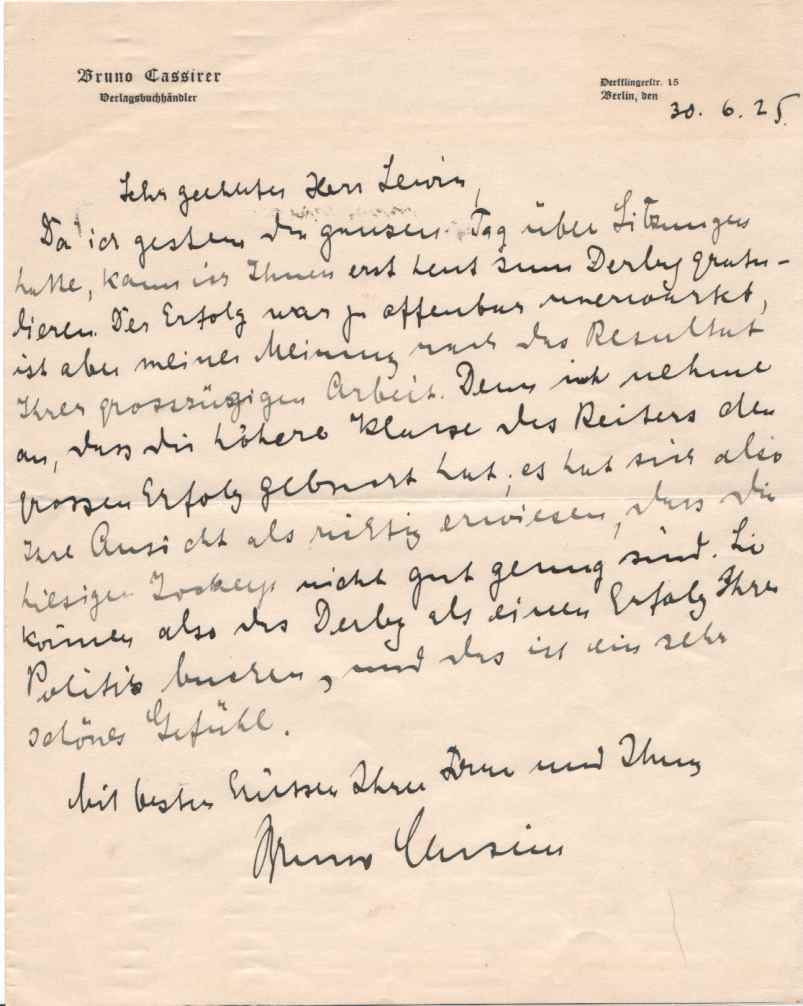 Bruno Cassirer
Verlagsbuchhändler
Derfflingerstr. 15
Berlin, den
30. 6. 25.
Sehr geehrter Herr Lewin,
Da ich gestern den ganzen Tag über Sitzungen
hatte, kann ich Ihnen erst heut zum Derby gratu-
lieren. Der Erfolg war ja offenbar unerwartet,
ist aber meiner Meinung nach das Resultat
Ihrer grosszügigen Arbeit. Denn ich nehme
an, dass die höhere Klasse des Reiters den
grossen Erfolg gebracht hat; es hat sich also
Ihre Ansicht als richtig erwiesen, dass die
hiesigen Jockeys nicht gut genug sind. Sie
können also das Derby als einen Erfolg Ihrer
Politik buchen, und das ist ein sehr
schönes Gefühl.
Mit besten Grüssen Ihrer und Ihnen
Bruno Cassirer